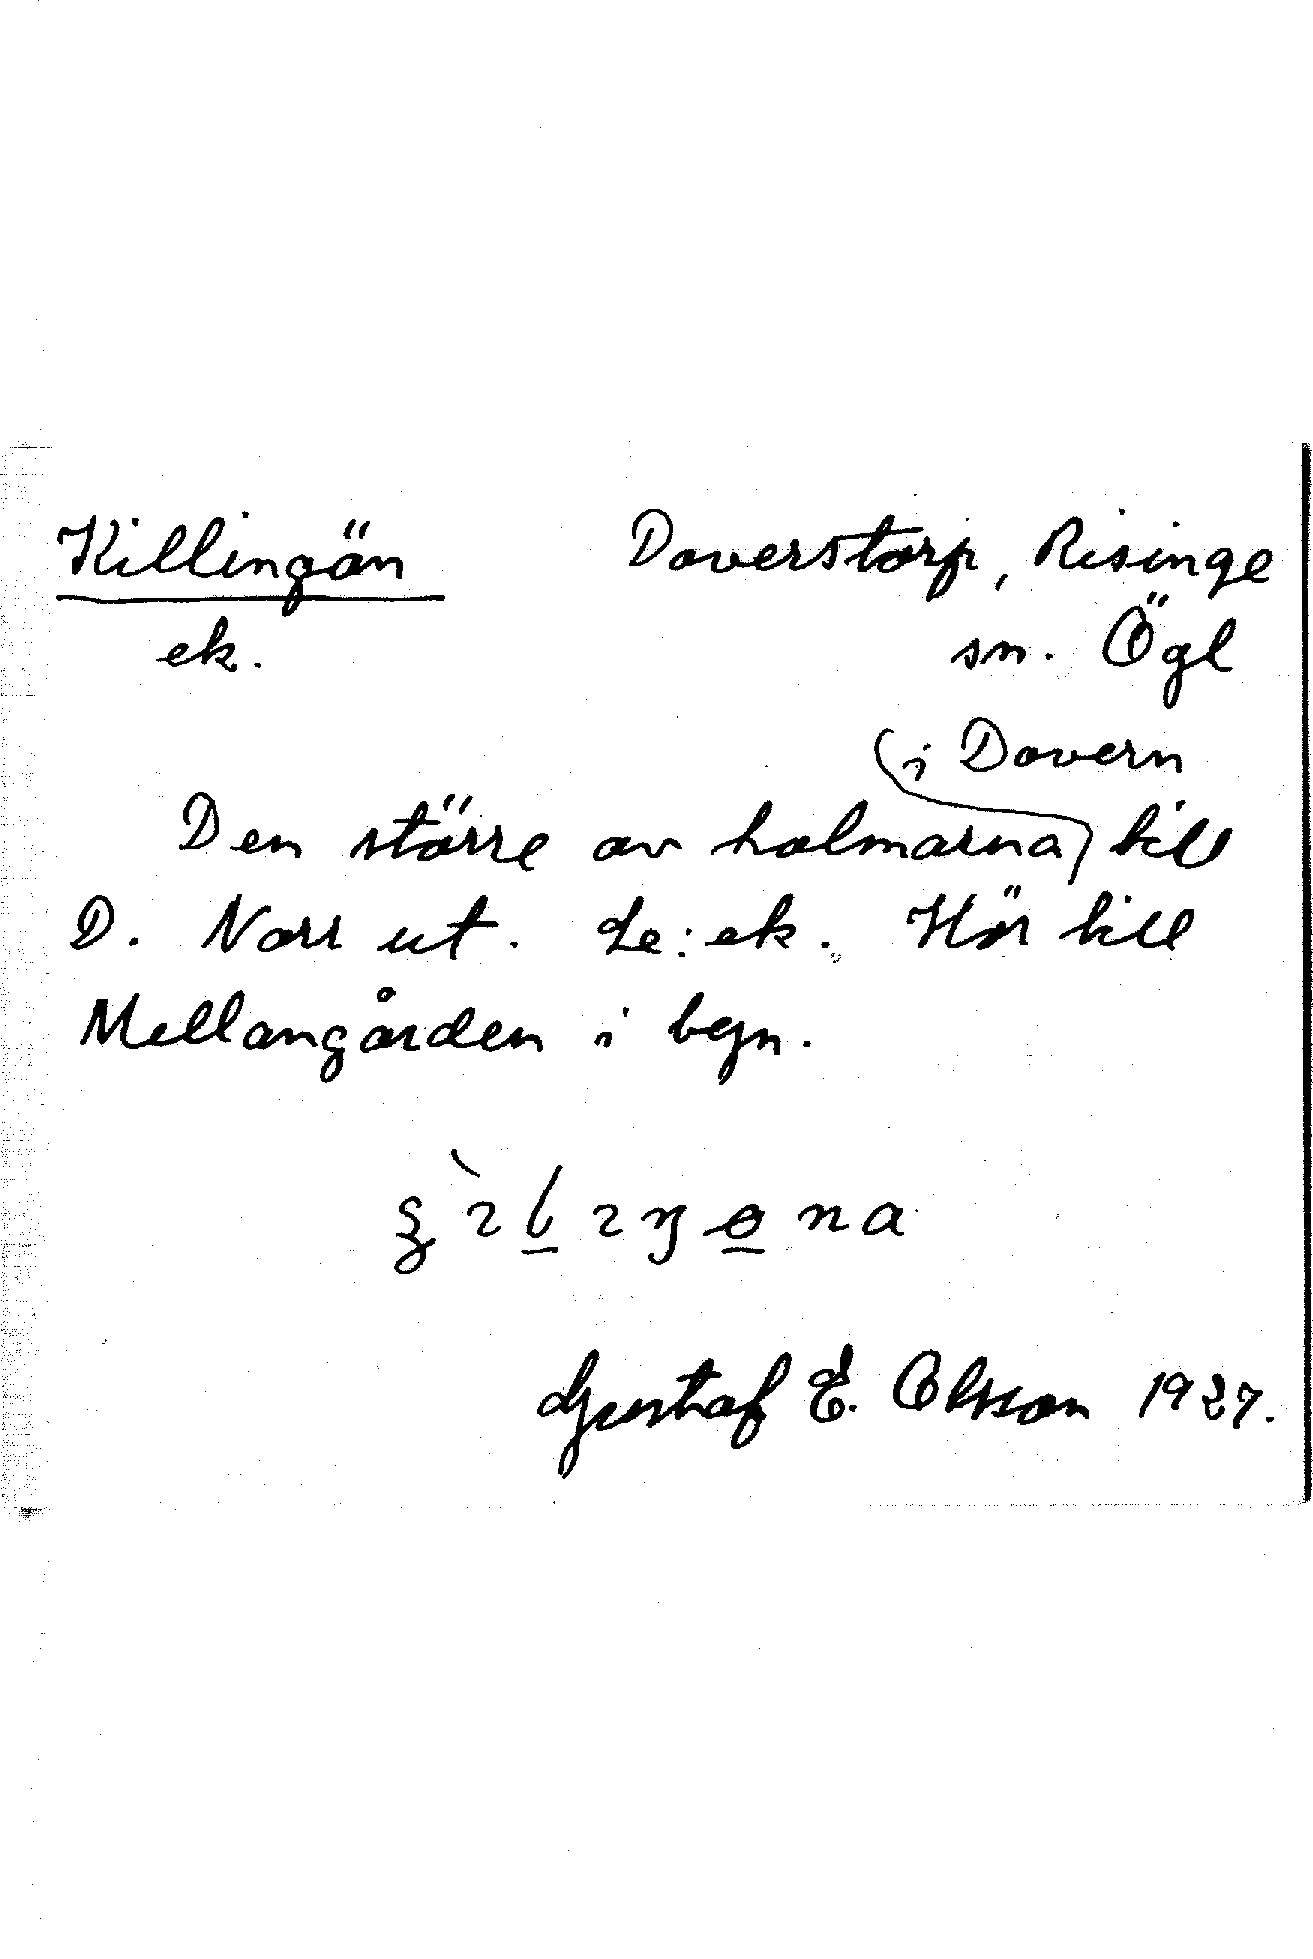 Killingön Doverstorp, Risinge
ek. sn. Ögl
Den större av holmarna (i Dovern) till
D. Norr ut. Le: ek. Hör till
Mellangården i byn.
Gustaf E. Olsson 1927.